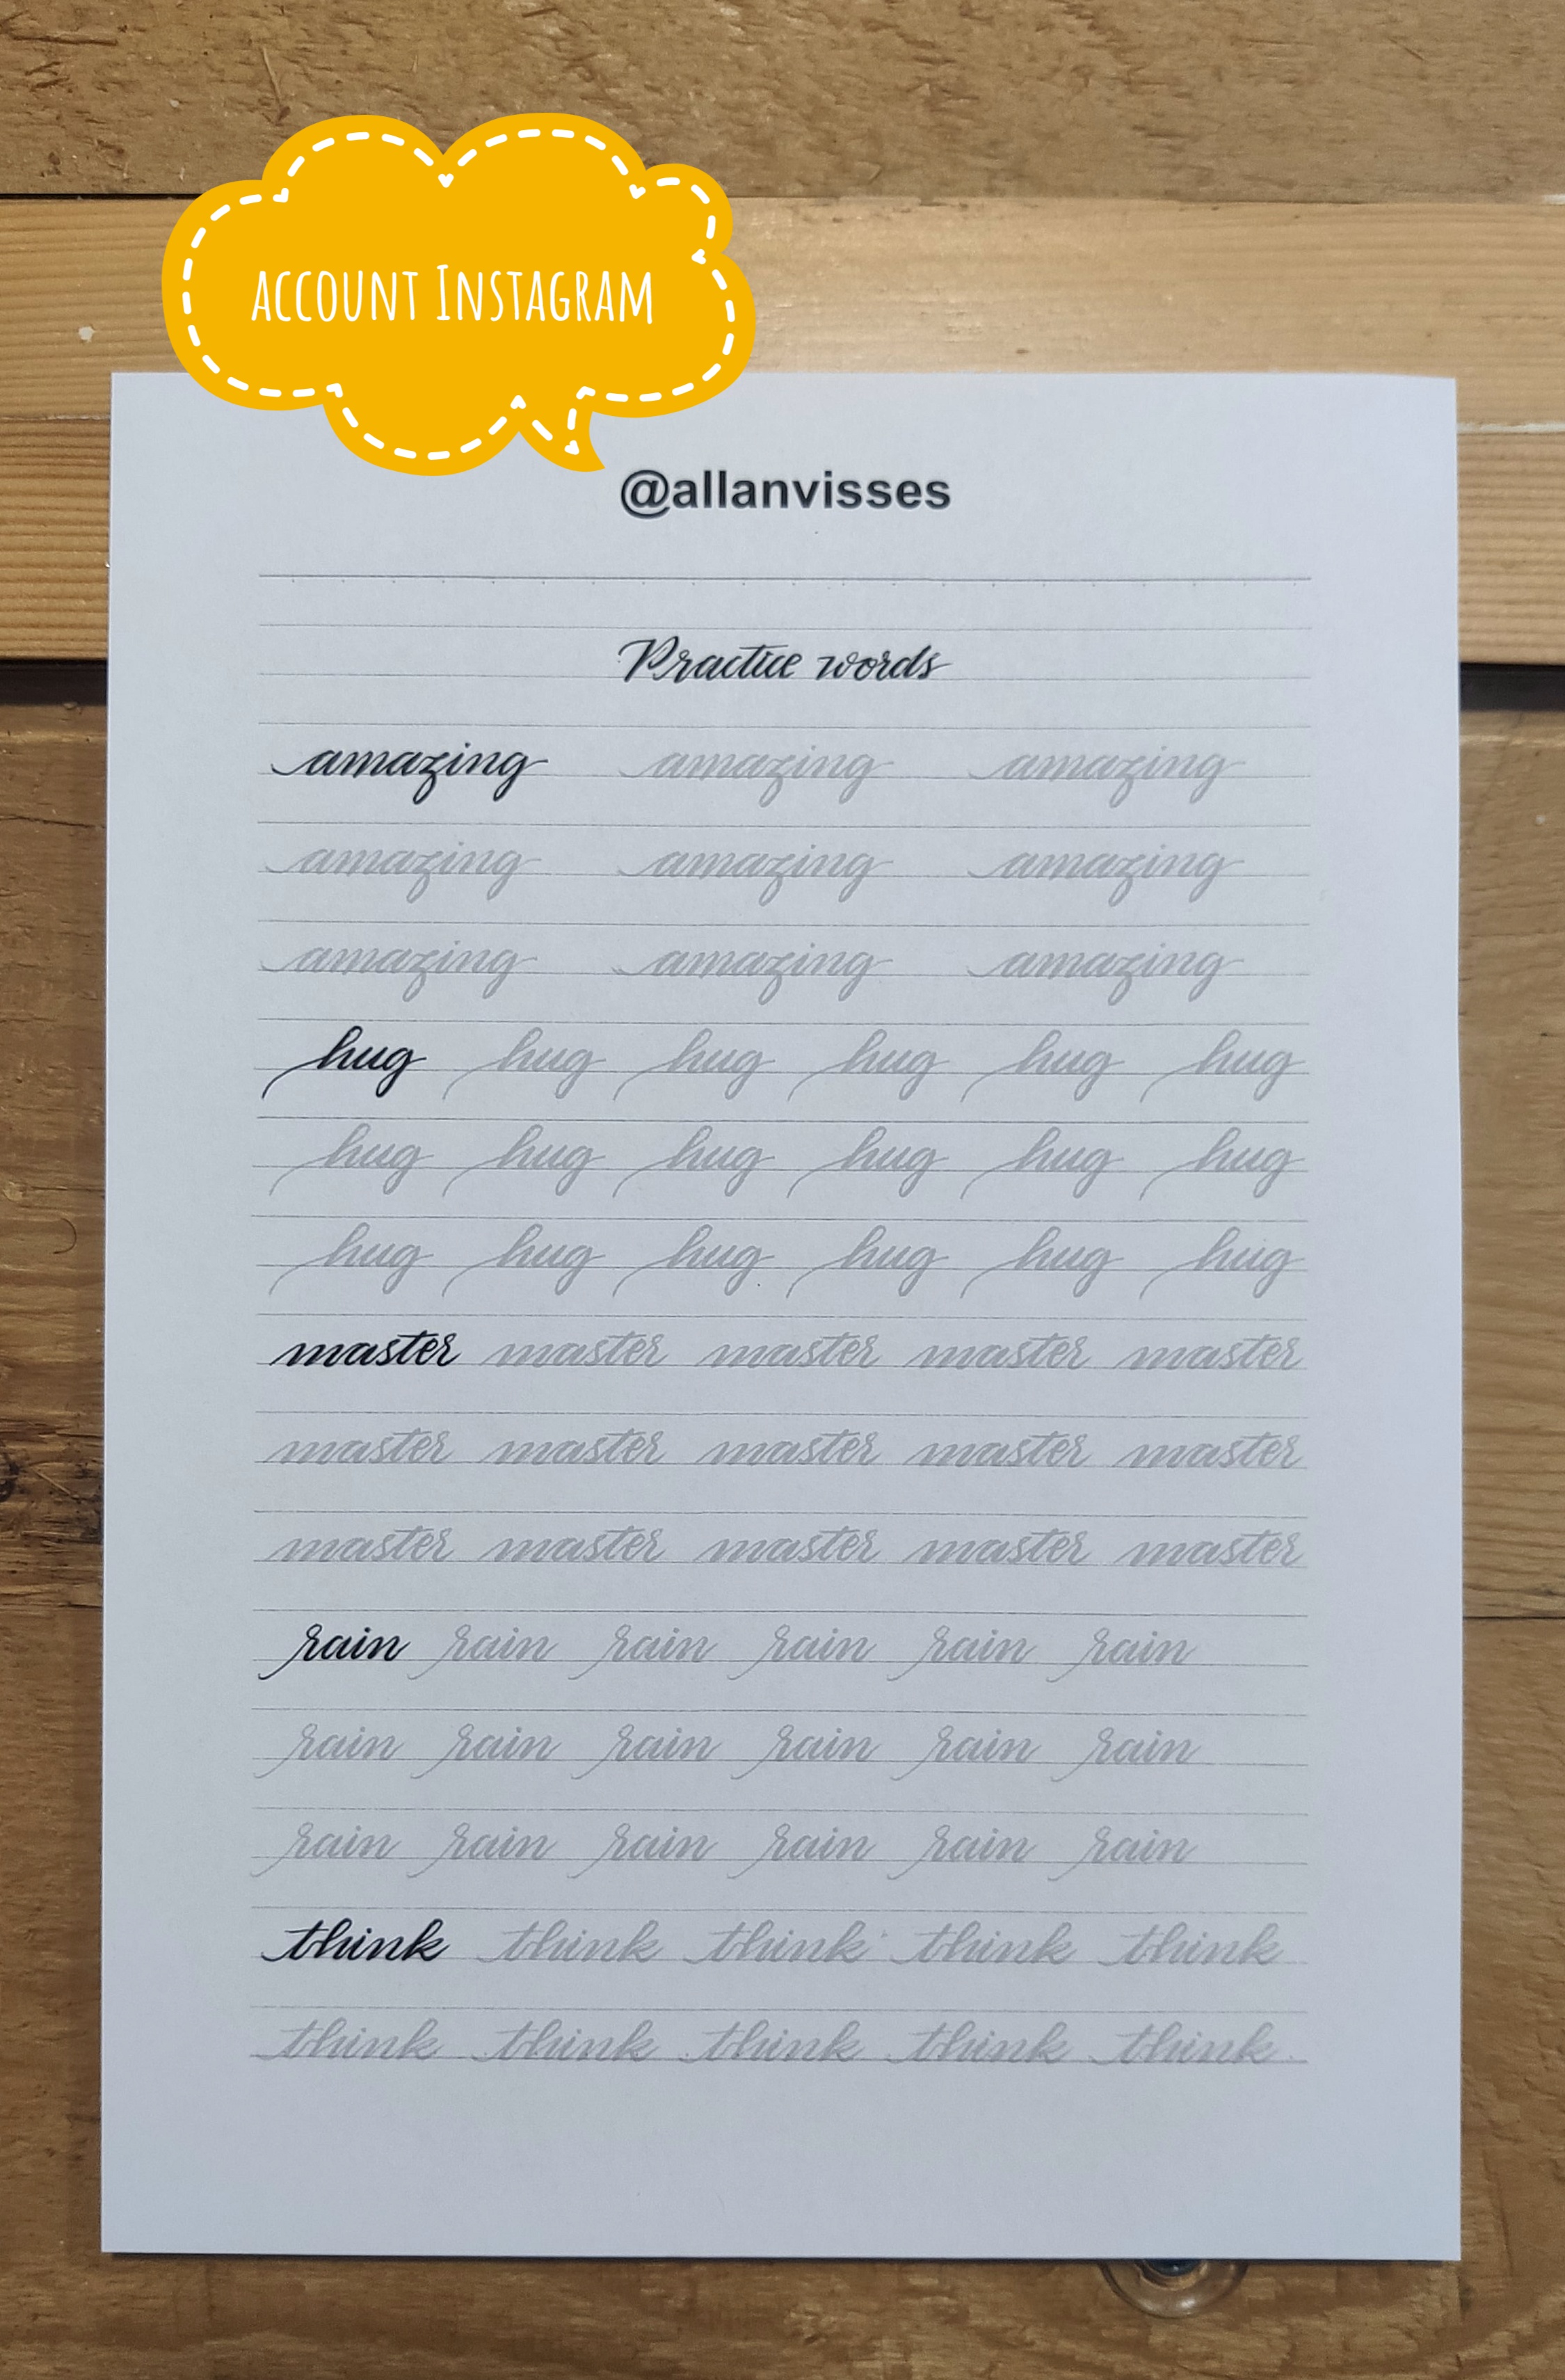 ACCOUNT INSTAGRAM
@allanvisses
Practice words
amazing amazing amazing
amazing amazing amazing
amazing amazing amazing
hug hug hug hug hug hug
hug hug hug hug hug hug
hug hug hug hug hug hug
master master master master master
master master master master master
master master master master master
rain rain rain rain rain rain
rain rain rain rain rain rain
rain rain rain rain rain rain
think think think think think
think think think think think